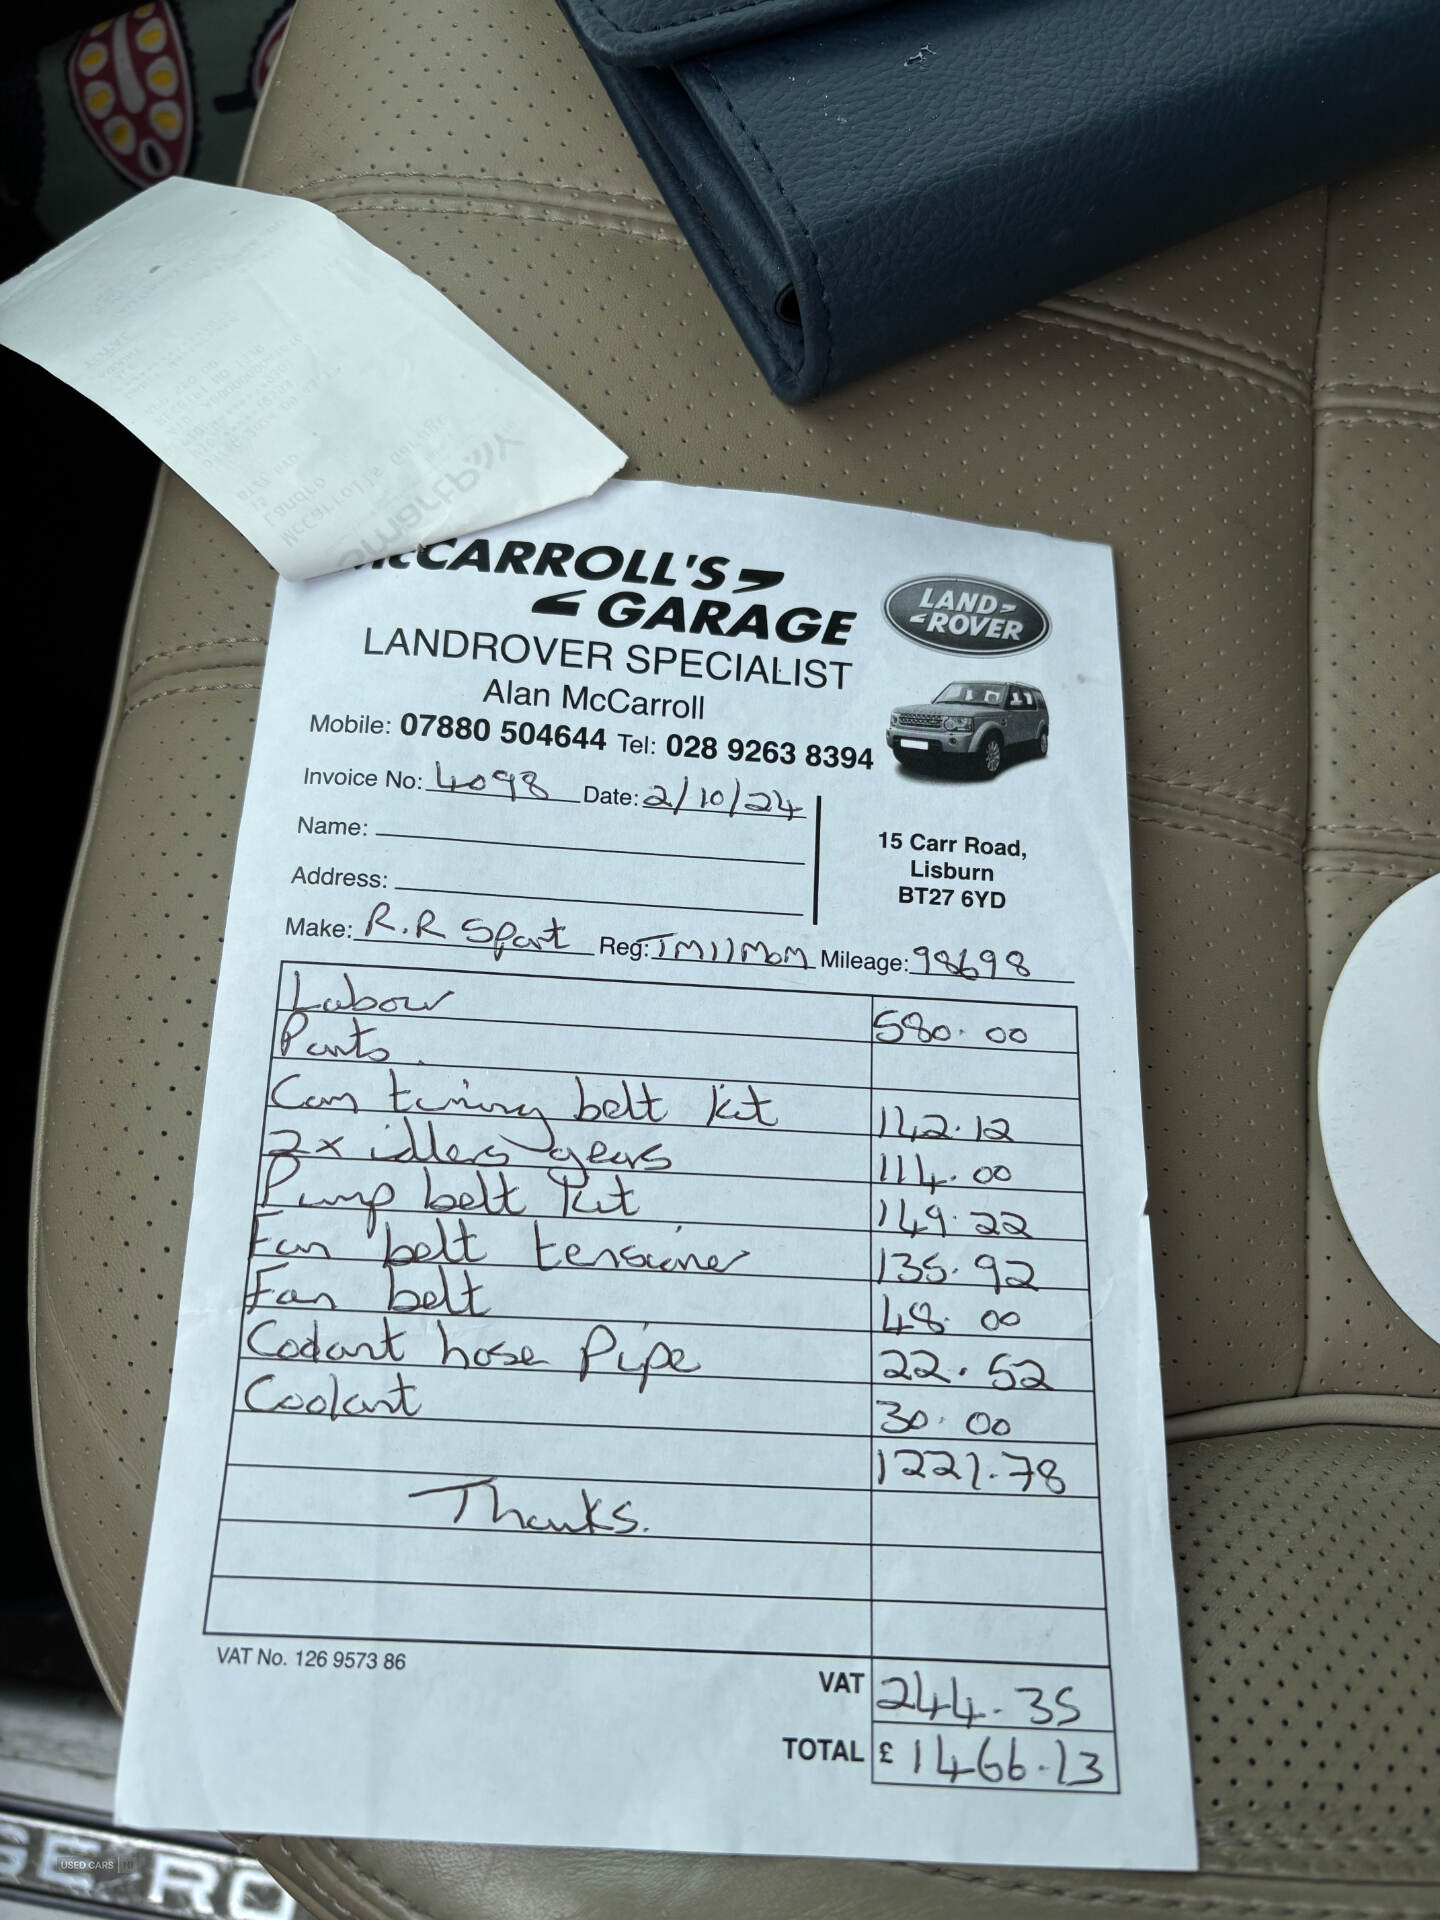 McCARROLL'S
GARAGE
LANDROVER SPECIALIST
Alan McCarroll
Mobile: 07880 504644 Tel: 028 9263 8394
LAND
ROVER
Invoice No: 4098 Date: 2/10/24
Name:
Address:
15 Carr Road,
Lisburn
BT27 6YD
Make: R.R Sport Reg: TM11MOM Mileage: 98698
Labour 580.00
Parts.
Cam timing belt kit 142.12
2x idlers gears 114.00
Pump belt kit 149.22
Fan belt tensioner 135.92
Fan belt 48.00
Coolant hose pipe 22.52
Coolant 30.00
1221.78
Thanks.
VAT No. 126 9573 86
VAT 244.35
TOTAL £ 1466.13
USED CARS NI